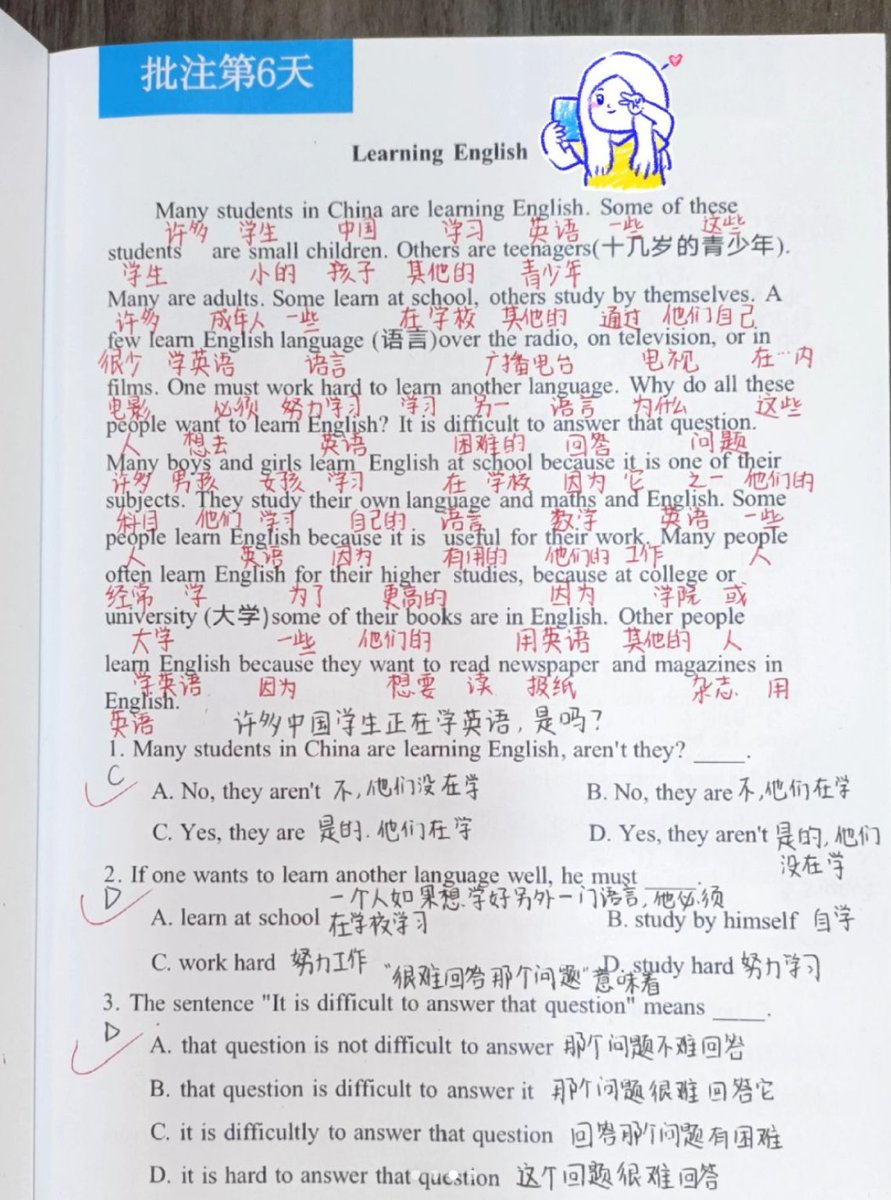 批注第6天
Learning English
Many students in China are learning English. Some of these
许多 学生 中国 学习 英语 一些 这些
students are small children. Others are teenagers(十几岁的青少年).
学生 小的 孩子 其他的 青少年
Many are adults. Some learn at school, others study by themselves. A
许多 成年人 一些 在学校 其他的 通过 他们自己
few learn English language (语言)over the radio, on television, or in
很少 学英语 语言 广播电台 电视 在…内
films. One must work hard to learn another language. Why do all these
电影 必须 努力学习 学习 另一 语言 为什么 这些
people want to learn English? It is difficult to answer that question.
人 想去 英语 困难的 回答 问题
Many boys and girls learn English at school because it is one of their
许多 男孩 女孩 学习 在 学校 因为 它 之一 他们的
subjects. They study their own language and maths and English. Some
科目 他们 学习 自己的 语言 数学 英语 一些
people learn English because it is useful for their work. Many people
人 英语 因为 有用的 他们的 工作 人
often learn English for their higher studies, because at college or
经常 学 为了 更高的 因为 学院 或
university (大学)some of their books are in English. Other people
大学 一些 他们的 用英语 其他的 人
learn English because they want to read newspaper and magazines in
学英语 因为 想要 读 报纸 杂志 用
English.
英语 许多中国学生正在学英语,是吗?
1. Many students in China are learning English, aren't they? ____.
C
A. No, they aren't 不,他们没在学 B. No, they are 不,他们在学
C. Yes, they are 是的.他们在学 D. Yes, they aren't 是的,他们
没在学
2. If one wants to learn another language well, he must ____.
D 一个人如果想学好另外一门语言,他必须
A. learn at school 在学校学习 B. study by himself 自学
C. work hard 努力工作 D. study hard 努力学习
"很难回答那个问题"意味着
3. The sentence "It is difficult to answer that question" means ____.
D
A. that question is not difficult to answer 那个问题不难回答
B. that question is difficult to answer it 那个问题很难回答它
C. it is difficultly to answer that question 回答那个问题有困难
D. it is hard to answer that question 这个回题很难回答